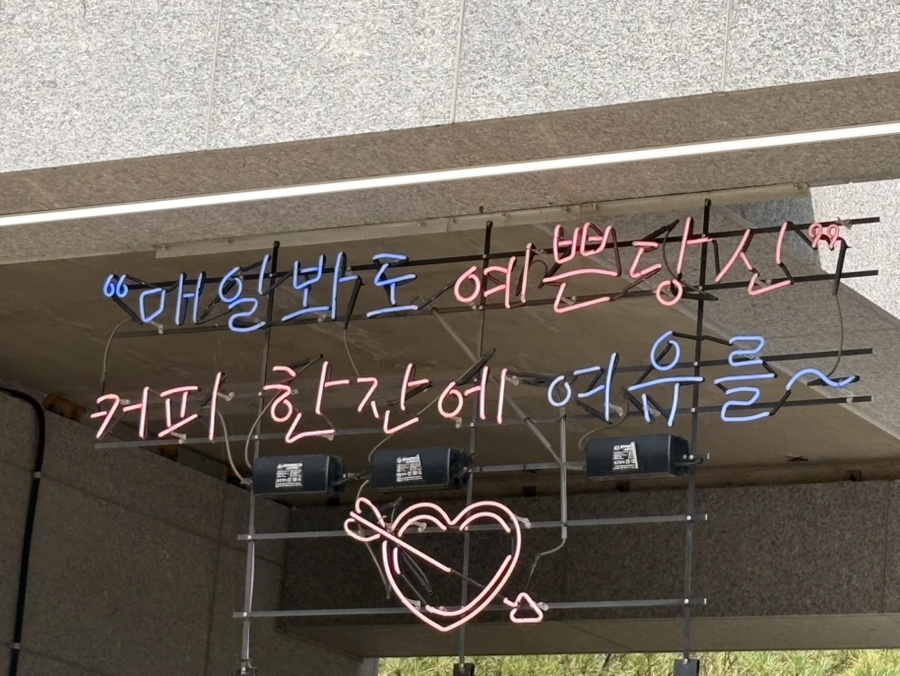 “매일봐도 예쁜당신”
커피 한잔에 여유를~